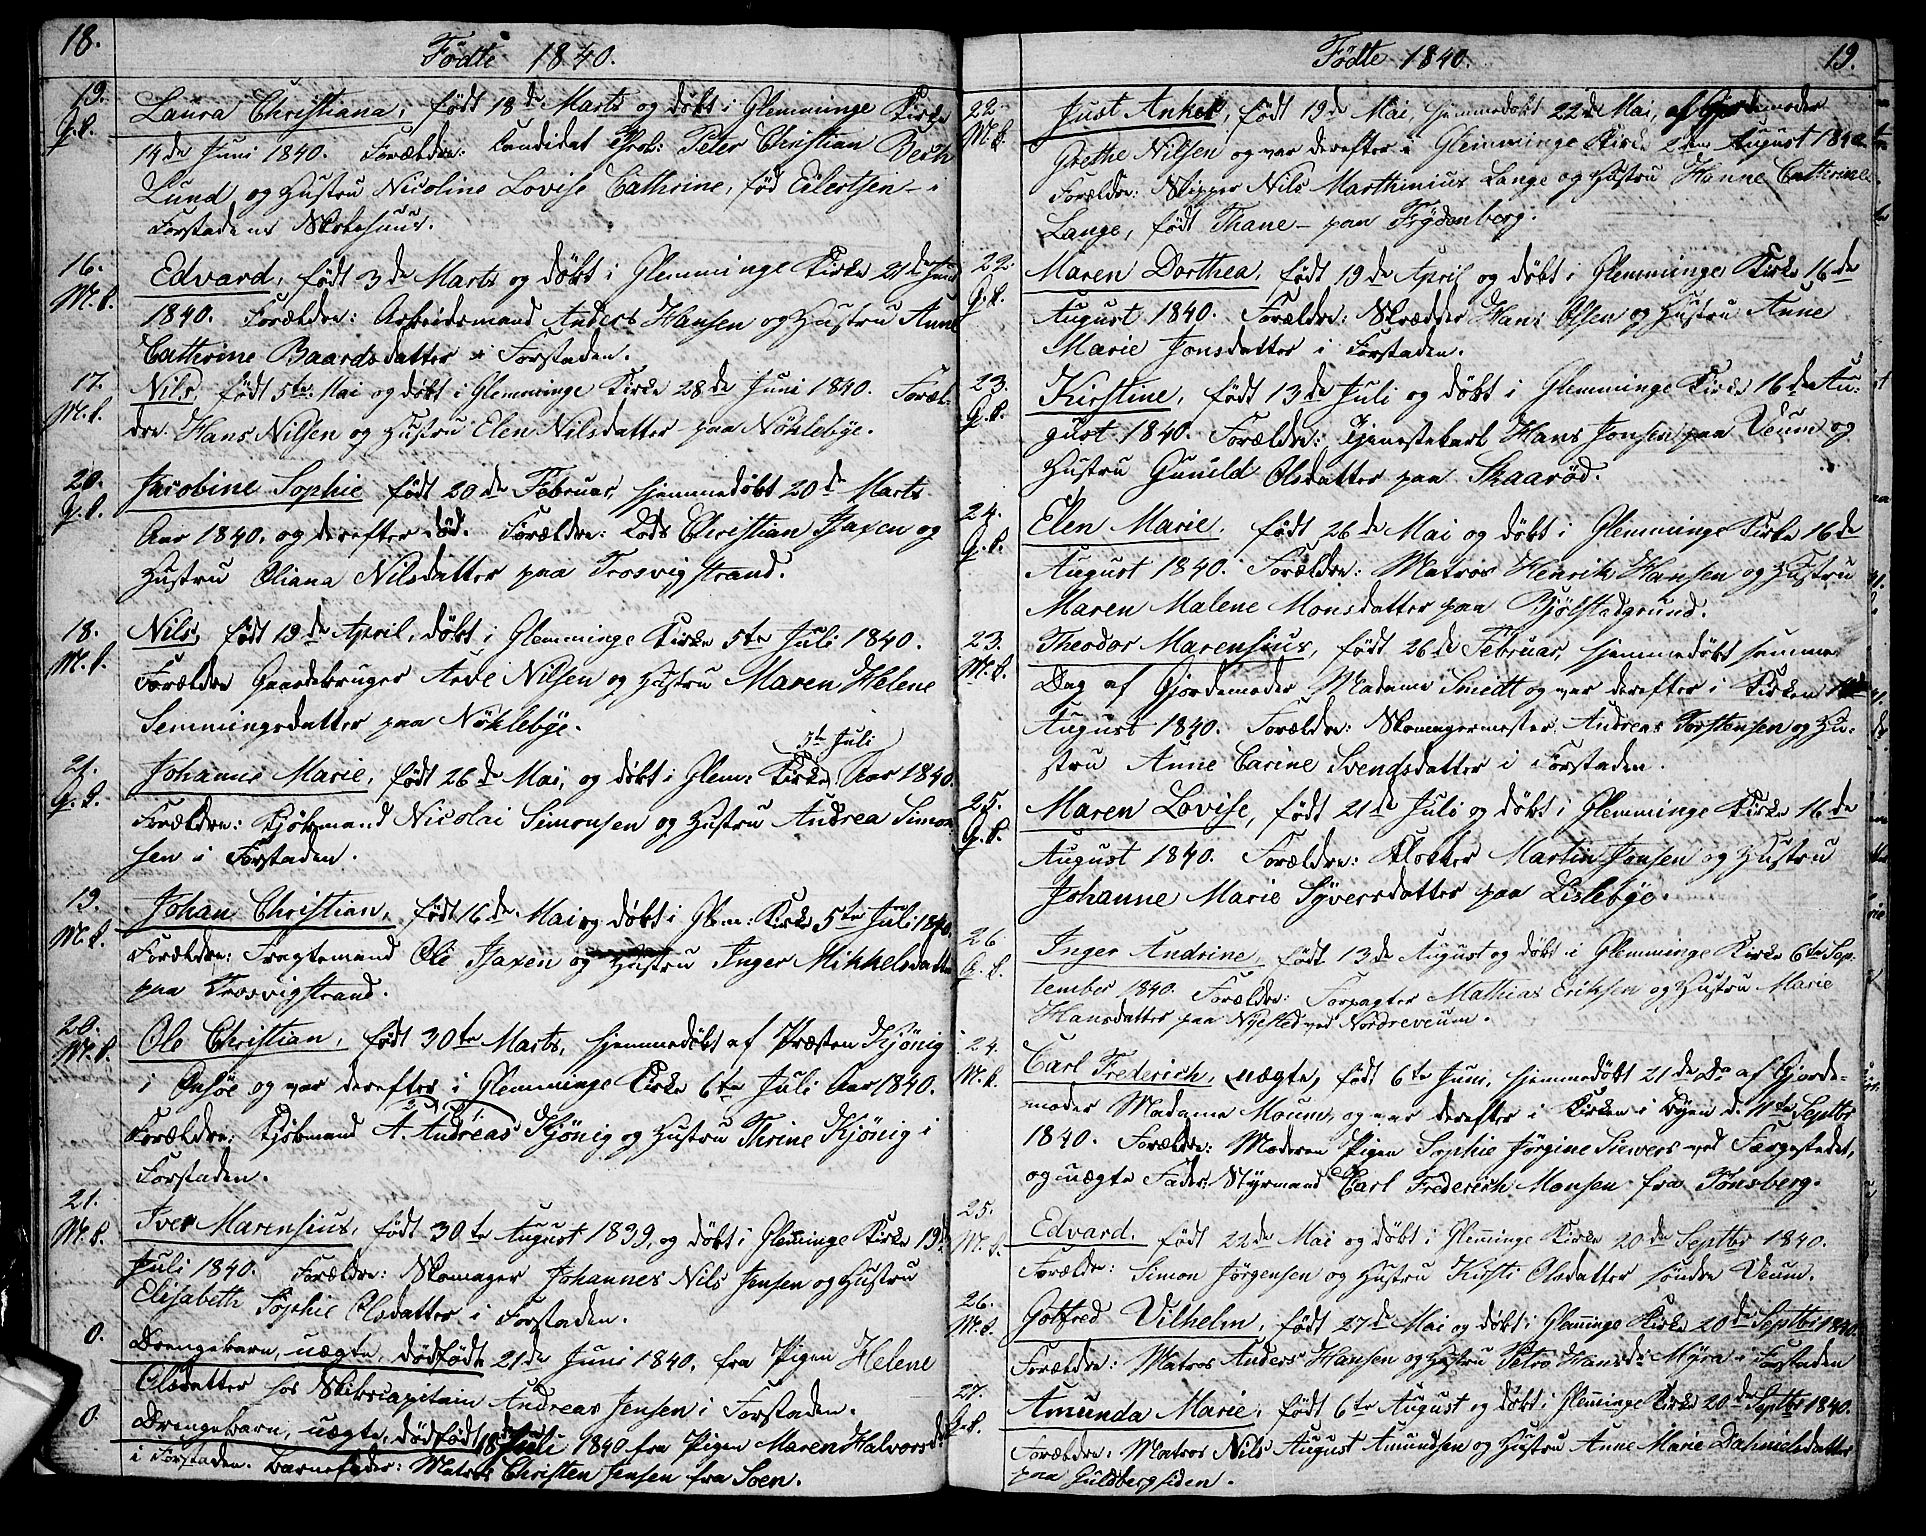 18.
Födte 1840.
19. Laura Christiana, født 18de Marts og døbt i Glemminge Kirke
P.k. 14de Juni 1840. Forældre: Candidat Peter Christian
Lund og Hustru Nicoline Lovise Cathrine, fød Eilertsen -
Forstadens
16. Edvard, født 3de Marts og døbt i Glemminge Kirke 21de Juni
M.k. 1840. Forældre: Arbeidsmand Anders Hansen og Hustru Anne
Cathrine Baardsdatter i Forstaden.
17. Nils, født 5te Mai og døbt i Glemminge Kirke 28de Juni 1840. Foræl-
M.k. dre: Hans Nilsen og Hustru Elen Nilsdatter paa Nøklebye.
20. Jacobine Sophie født 20de Februar, hjemmedøbt 20de Marts
P.k. Aar 1840. og derefter død. Forældre: Lods Christian Isaxen og
Hustru Oliana Nilsdatter paa Trosvigstrand.
18. Nils, født 19de April, døbt i Glemminge Kirke 5te Juli 1840.
M.k. Forældre Gaardbruger Arve Nilsen og Hustru Maren Helene
Semmingsdatter paa Nøklebye.
5te Juli
21. Johanne Marie, født 26de Mai, og døbt i Glem: Kirke, Aar 1840.
P.k. Forældre: Kjøbmand Nicolai Simonsen og Hustru Andrea Simon
sen i Forstaden.
19. Johan Christian, født 16de Mai og døbt i Glem: Kirke 5te Juli 1840.
M.k. Forældre: Fragtemand Ole Isaxen og Hustru Inger Mikkelsdatter
paa Trosvigstrand.
20. Ole Christian, født 30te Marts, hjemmedøbt af Præsten Kjönig
M.k. i Onsøe og var derefter i Glemminge Kirke 6te Juli Aar 1840.
Forældre: Kjøbmand A. Andreas Kjönig og Hustru Thrine Kjönig i
Forstaden.
21. Iver Marensius, født 30te August 1839, og døbt i Gleminge Kirke 19de
M.k. Juli 1840. Forældre: Skomager Johannes Nils Jensen og Hustru
Elisabeth Sophie Olsdatter i Forstaden.
0. Drengebarn, uægte, dødfødt 21de Juni 1840. fra Pigen Helene
Olsdatter hos Skibscapitain Andreas Jensen i Forstaden.
0. Drengebarn, uægte, dødfødt 18de Juli 1840 fra Pigen Maren Halvorsd
i Forstaden. Barnefader: Matros Christen Jensen fra Soen.
Födte 1840.
19.
22. Just Anker, født 19de Mai, hjemmedøbt 22de Mai, af Gjordemoder
M.k. Grethe Nilsen og var derefter i Glemminge Kirke 2den August 1840.
Forældre: Skipper Nils Marthinius Lange og Hustru Hanne Cathrine
Lange, født Thane - paa Frydenberg.
22. Maren Dorthea, født 19de April og døbt i Glemminge Kirke 16de
P.k. August 1840. Forældre: Skrædder Hans Olsen og Hustru Anne
Marie Jonsdatter i Forstaden.
23. Kirstine, født 13de Juli og døbt i Glemminge Kirke 16de Au-
P.k. gust 1840. Forældre: Tjenestekarl Hans Jonsen paa Veum og
Hustru Gunild Olsdatter paa Skaarød.
24. Elen Marie, født 26de Mai og døbt i Glemminge Kirke 16de
P.k. August 1840. Forældre: Matros Henrik Hansen og Hustru
Maren Malene Monsdatter paa Bjølstadgrund.
23. Theodor Marensius, født 26de Februar, hjemmedøbt samme
M.k. Dag af Gjordemoder Madame Smedt og var derefter i Kirken
August 1840. Forældre: Skomagermester Andreas Torstensen og Hu-
stru Anne Carine Svendsdatter i Forstaden.
25. Maren Lovise, født 21de Juli og døbt i Glemminge Kirke 16de
P.k. August 1840. Forældre: Klokker Martin Jonsen og Hustru
Johanne Marie Syversdatter paa Lislebye.
26. Inger Andrine, født 13de August og døbt i Glemminge Kirke 6te Sep-
P.k. tember 1840. Forældre: Forpagter Mathias Eriksen og Hustru Marie
Hansdatter paa Nyested ved Nordreveum.
24. Carl Frederich, uægte, født 6te Juni, hjemmedøbt 21de Do af Gjorde-
M.k. moder Madame Moum, og var derefter i Kirken i Byen d. 11te Septbr
1840. Forældre: Moderen Pigen Sophie Jørgine Siewers ved Færgestedet,
og uægte Fader: Styrmand Carl Frederich Monsen fra Tønsberg.
25. Edvard, født 22de Mai og døbt i Gleminge Kirke 20de Septbr 1840.
M.k. Forældr: Simon Jørgensen og Hustru Kirsti Olsdatter søndre Veum.
26. Gotfred Vilhelm, født 27de Mai og døbt i Gleminge Kirke 20de Septbr 1840.
M.k. Forældre: Matros Anders Hansen og Hustru Petro Hansdr Myra i Forstaden
27. Amunda Marie, født 6te August og døbt i Gleminge Kirke 20de Septbr 1840.
P.k. Forældre: Matros Nils August Amundsen og Hustru Anne Marie Dahnielsdatter
paa Guldbergsiden.